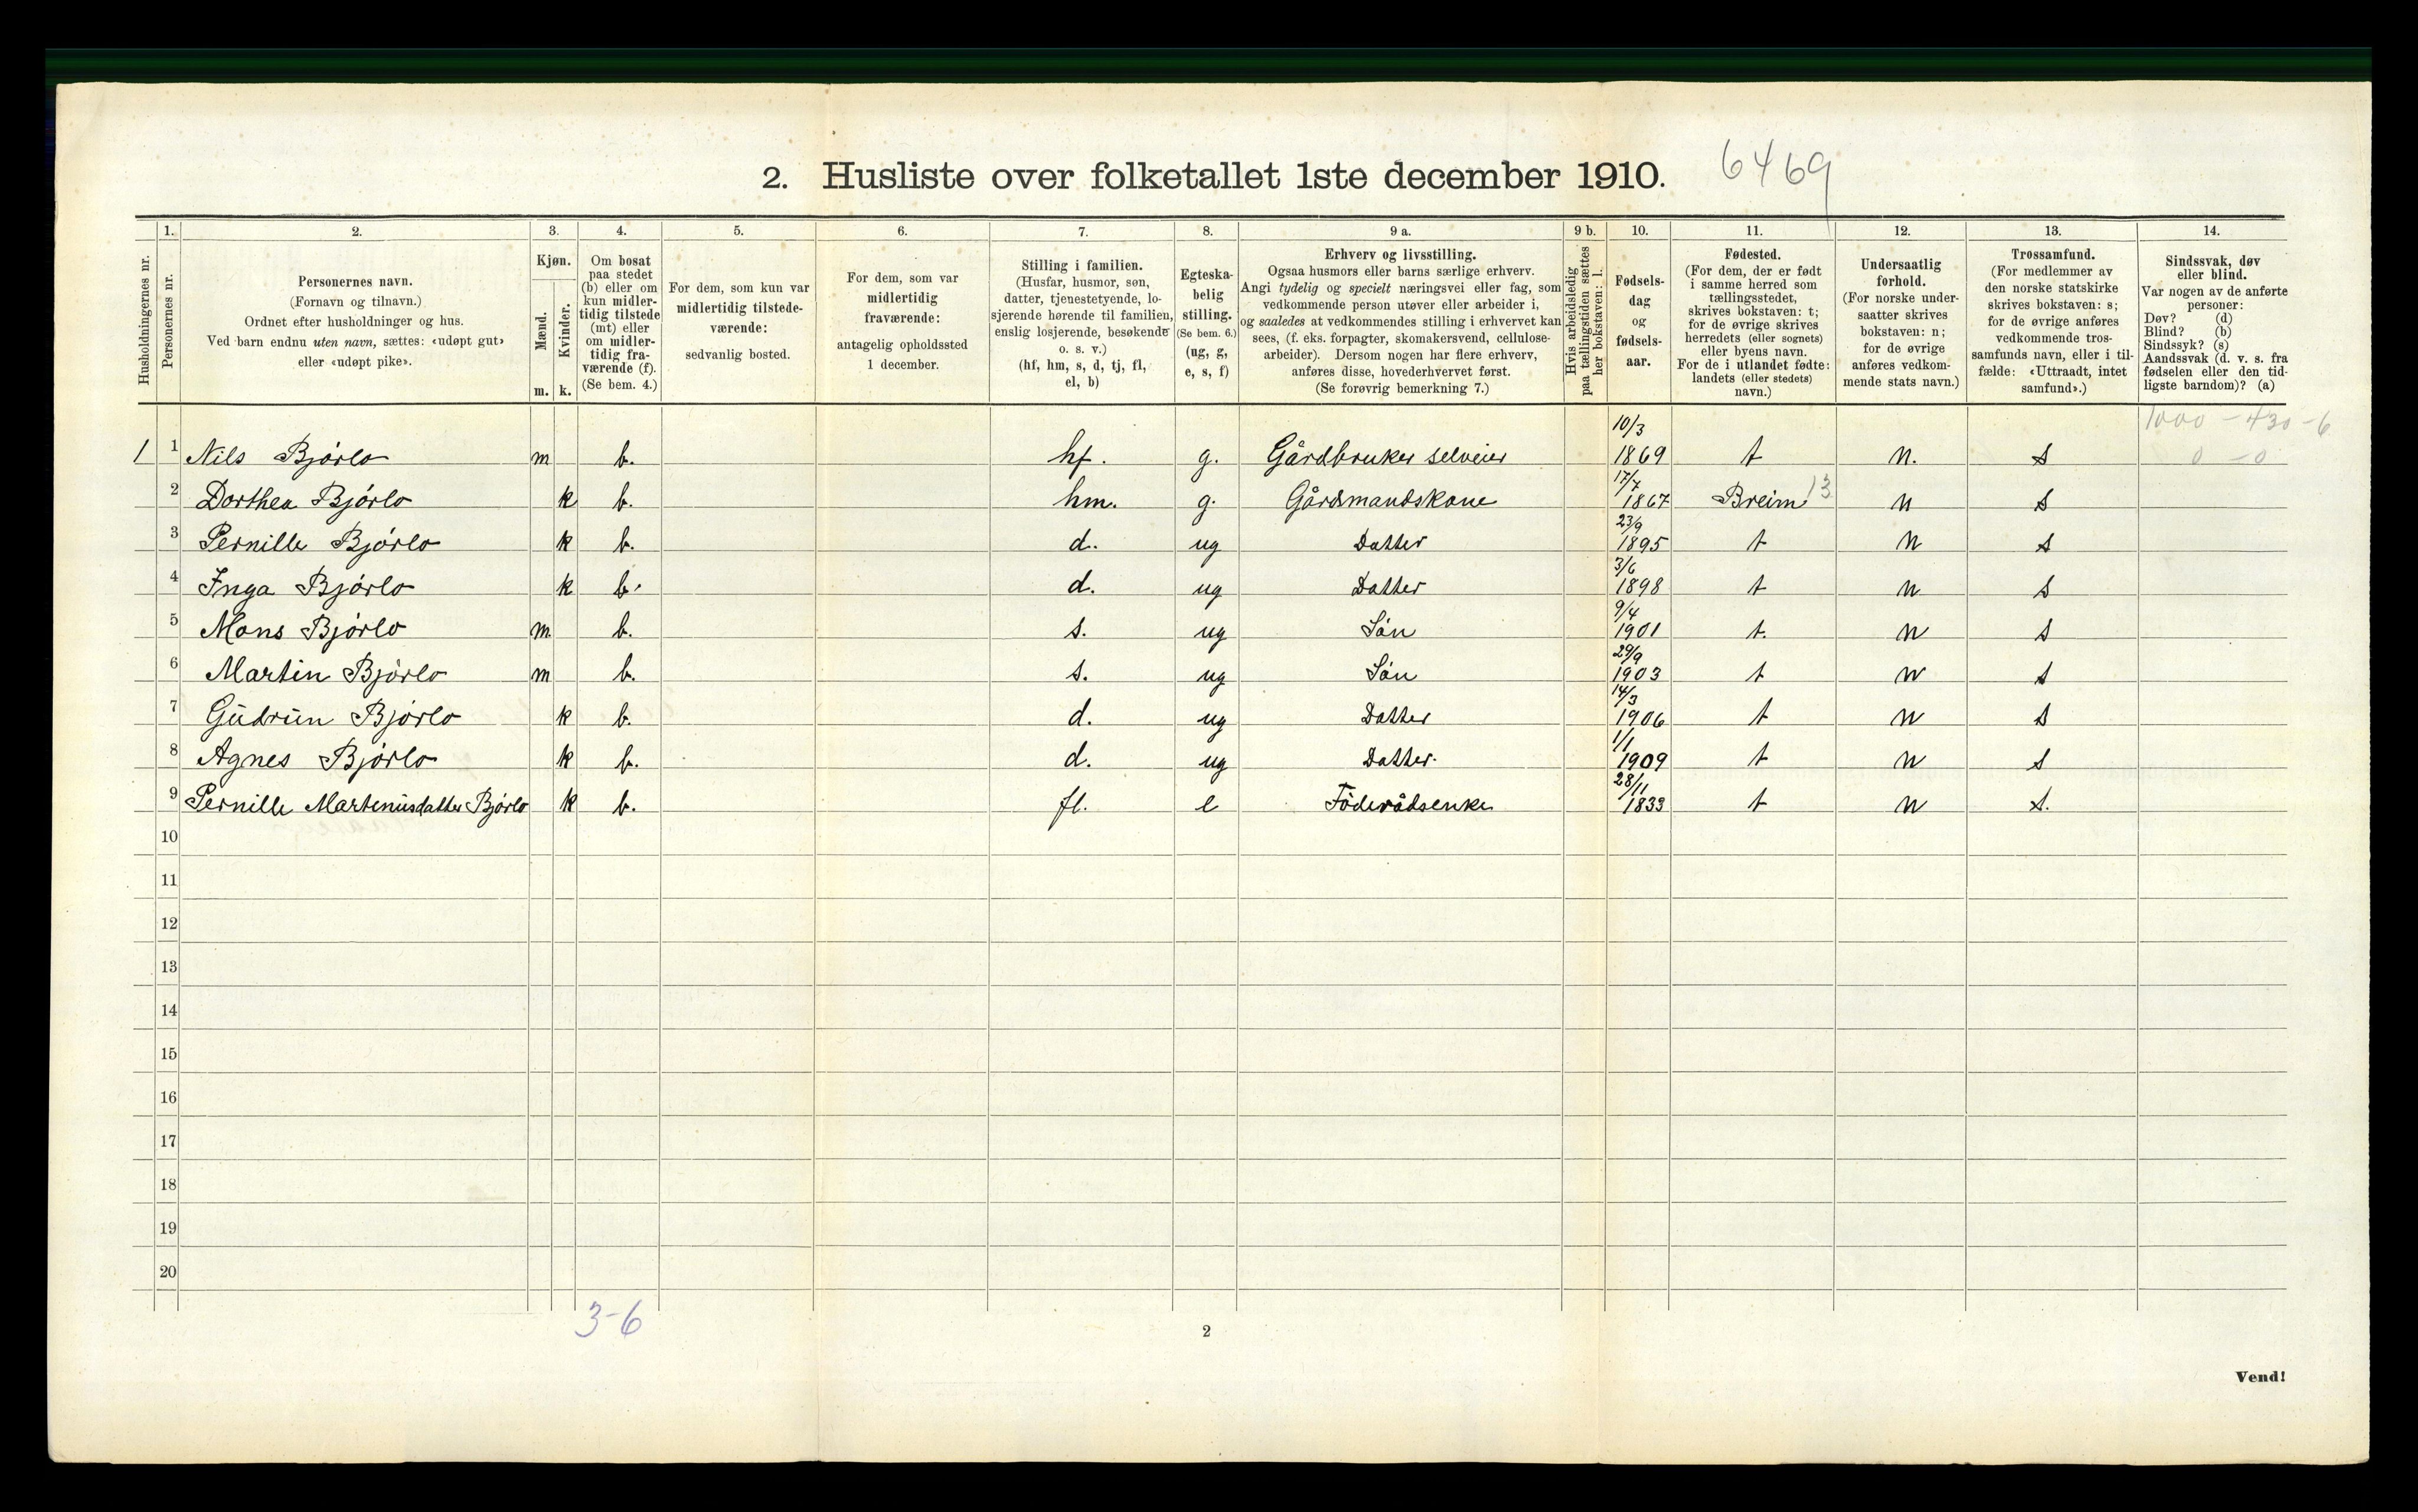 2. Husliste over folketallet 1ste december 1910. 6469
Husholdningernes nr.
1.
Personernes nr.
2.
Personernes navn.
(Fornavn og tilnavn.)
Ordnet efter husholdninger og hus.
Ved barn endnu uten navn, sættes: «udøpt gut»
eller «udøpt pike».
3.
Kjøn.
Mænd.
Kvinder.
m. k.
4.
Om bosat
paa stedet
(b) eller om
kun midler-
tidig tilstede
(mt) eller
om midler-
tidig fra-
værende (f).
(Se bem. 4.)
5.
For dem, som kun var
midlertidig tilstede-
værende:
sedvanlig bosted.
6.
For dem, som var
midlertidig
fraværende:
antagelig opholdssted
1 december.
7.
Stilling i familien.
(Husfar, husmor, søn,
datter, tjenestetyende, lo-
sjerende hørende til familien,
enslig losjerende, besøkende
o. s. v.)
(hf, hm, s, d, tj, fl,
el, b)
8.
Egteska-
belig
stilling.
(Se bem. 6.)
(ug, g,
e, s, f)
9 a.
Erhverv og livsstilling.
Ogsaa husmors eller barns særlige erhverv.
Angi tydelig og specielt næringsvei eller fag, som
vedkommende person utøver eller arbeider i,
og saaledes at vedkommendes stilling i erhvervet kan
sees, (f. eks. forpagter, skomakersvend, cellulose-
arbeider). Dersom nogen har flere erhverv,
anføres disse, hovederhvervet først.
(Se forøvrig bemerkning 7.)
9 b.
Hvis arbeidsledig
paa tællingstiden sættes
her bokstaven: l.
10.
Fødsels-
dag
og
fødsels-
aar.
11.
Fødested.
(For dem, der er født
i samme herred som
tællingsstedet,
skrives bokstaven: t;
for de øvrige skrives
herredets (eller sognets)
eller byens navn.
For de i utlandet fødte:
landets (eller stedets)
navn.)
12.
Undersaatlig
forhold.
(For norske under-
saatter skrives
bokstaven: n;
for de øvrige
anføres vedkom-
mende stats navn.)
13.
Trossamfund.
(For medlemmer av
den norske statskirke
skrives bokstaven: s;
for de øvrige anføres
vedkommende tros-
samfunds navn, eller i til-
fælde: «Uttraadt, intet
samfund».)
14.
Sindssvak, døv
eller blind.
Var nogen av de anførte
personer:
Døv? (d)
Blind? (b)
Sindssyk? (s)
Aandssvak (d. v. s. fra
fødselen eller den tid-
ligste barndom)? (a)
1000 - 430 - 6
1 1 Nils Bjørlo m b. hf. g. Gårdbruker selveier 10/3 1869 t n. s 0 - 0
2 Dorthea Bjørlo k b. hm. g. Gårdmandskone 17/7 1867 Breim 13 n s
3 Pernille Bjørlo k b. d. ug Datter 23/9 1895 t n s
4 Inga Bjørlo k b. d. ug Datter 3/6 1898 t n s
5 Mons Bjørlo m b. s. ug Søn 9/4 1901 t. n s
6 Martin Bjørlo m b. s. ug Søn 29/9 1903 t n s
7 Gudrun Bjørlo k b. d. ug Datter 14/3 1906 t n s
8 Agnes Bjørlo k b. d. ug Datter 1/1 1909 t n s
9 Pernille Martenusdatter Bjørlo k b. fl. e Föderådsenke 28/11 1833 t n s.
10
11
12
13
14
15
16
17
18
19
20
3-6
2
Vend!